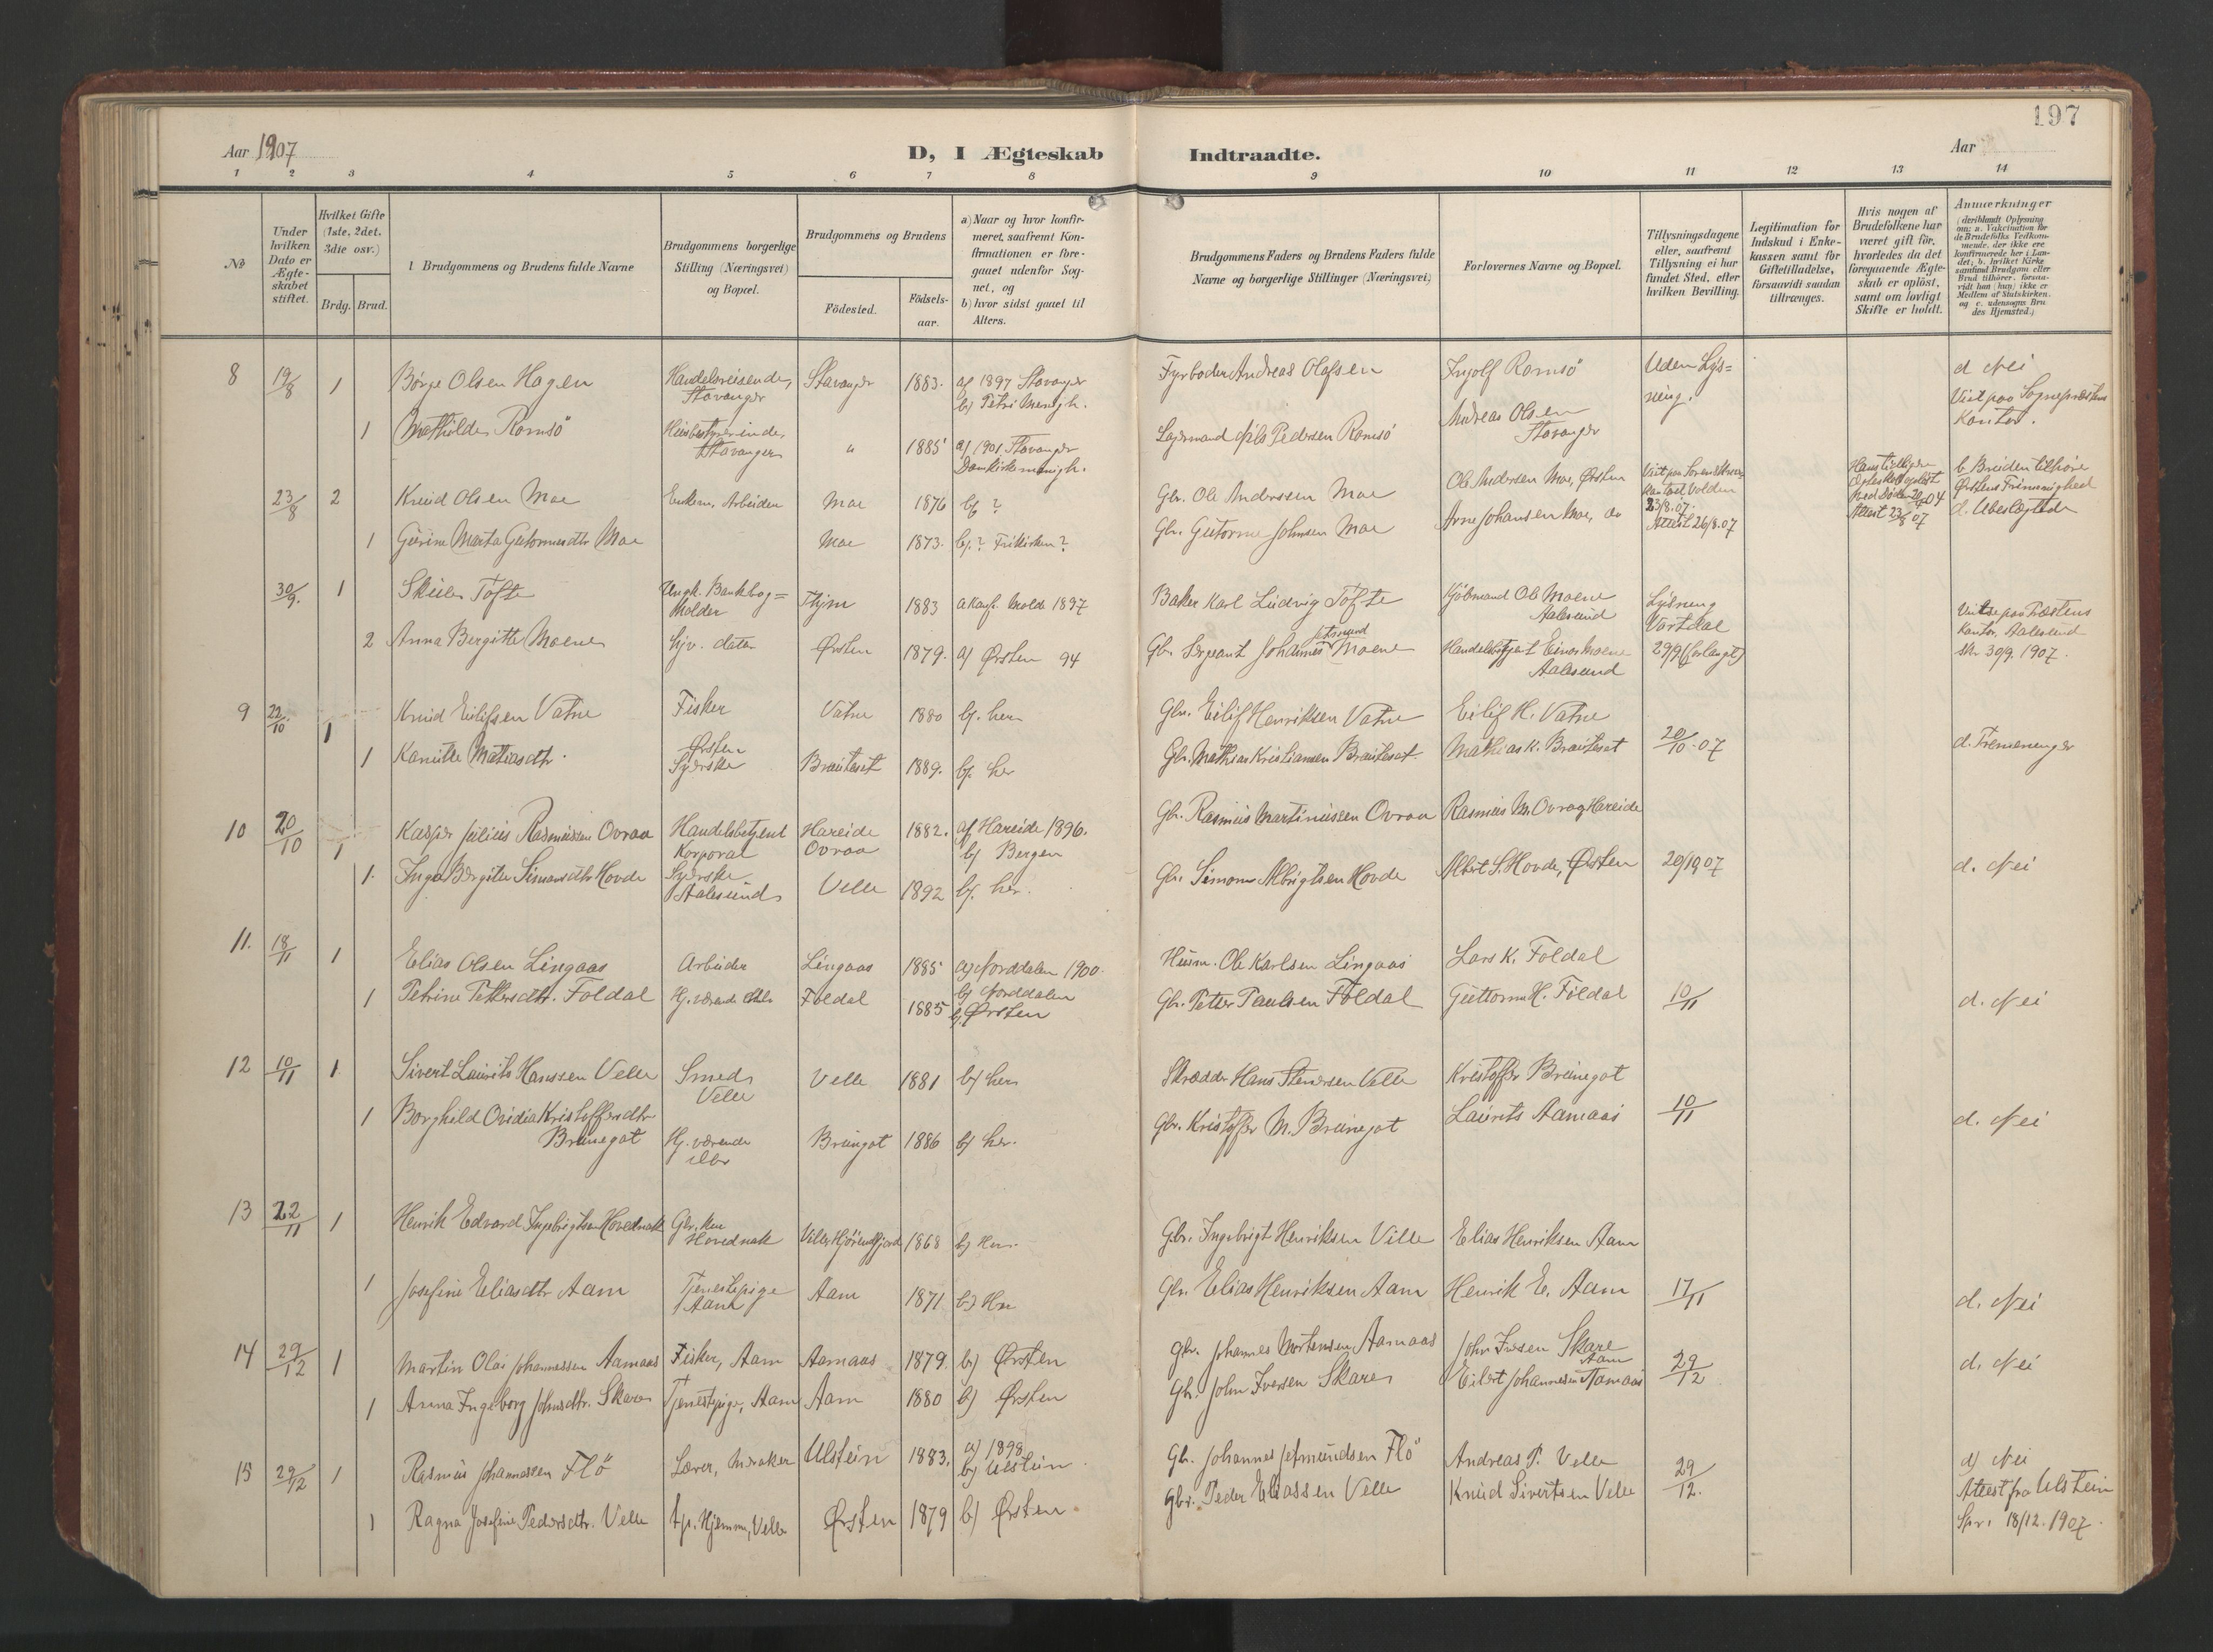 197
Aar 1907
D, I Ægteskab Indtraadte.
Aar
1 2 3 4 5 6 7 8 9 10 11 12 13 14
No
Under hvilken Dato er Ægte-skabet stiftet.
Hvilket Gifte (1ste, 2det, 3die osv.)
Brdg. Brud.
Brudgommens og Brudens fulde Navne
Brudgommens borgerlige Stilling (Næringsvei) og Bopæl.
Brudgommens og Brudens
Födested.
Födsels-aar.
a) Naar og hvor konfir-meret, saafremt Kon-firmationen er fore-gaaet udenfor Sog-net, og
b) hvor sidst gaaet til Alters.
Brudgommens Faders og Brudens Faders fulde Navne og borgerlige Stillinger (Næringsvei)
Forlovernes Navne og Bopæl.
Tillysningsdagene eller, saafremt Tillysning ei har fundet Sted, efter hvilken Bevilling.
Legitimation for Indskud i Enke-kassen samt for Giftetilladelse, forsaavidt saadan tiltrænges.
Hvis nogen af Brudefolkene har været gift för, hvorledes da det foregaaende Ægte-skab er oplöst, samt om lovligt Skifte er holdt.
Anmærkninger
(deriblandt Oplysning om: a. Vakcination for de Brudefolks Vedkom-mende, der ikke ere konfirmerede her i Lan-det; b. hvilket Kirke-samfund Brudgom eller Brud tilhörer, forsaa-vidt han (hun) ikke er Medlem af Statskirken, og c. udensogns Bru-des Hjemsted.)
8 19/8 1 Börge Olsen Hagen Handelsreisende, Stavanger Stavanger 1883. a) 1897 Stavanger b) Petri Menigh. Fyrböder Andreas Olafsen Ingolf Romsö Uden Lys=ning. d Nei
Viet paa Sognepræstens Kontor.
1 Mathilde Romsö Husbestyrerinde, Stavanger " 1885 a) 1901 Stavanger Domkirkemenigh. Lagermand Nils Pedersen Romsö Andreas Olsen Stavanger
23/8 2 Knud Olsen Moe Enkem. Arbeider Moe 1876 b) ? Gbr. Ole Andersen Moe Ole Andersen Moe, Örsten Viet paa Sorenskriver-kontoret Volden 23/8.07. Attest 26/8.07 b Bruden tilhörer Örstens Frimenighed d. Ubeslægtede
1 Gurine Marta Guttormsdtr Moe Moe 1873. b). ? Frikirken? Gbr. Guttorm Johnsen Moe Arne Johansen Moe, do
30/9. 1 Skule Tofte Ungk. Bankbog=holder 1883 a Konf. Molde 1897 Baker Karl Ludvig Tofte Kjöbmand Ole Moene Aalesund Lysning Vartdal 29/9 (forlangt) Viede paa Præstens Kontor, Aalesund 30/9. 1907.
2 Anna Bergitte Moene Hjv. datter Örsten 1879. a) Örsten 94 Gbr. Sergeant Johannes Jetmund Moene Handelsbetjent Einar Moene Aalesund
9 22/10. 1 Knud Eilifsen Vatne Fisker Vatne 1880 b). her Gbr. Eilif Henriksen Vatne Eilif H. Vatne 20/10-07 d. Tremenninger
1 Kamille Mathiasdtr. Örsten Syerske Brauteset 1889. b). her Gbr. Mathias Kristiansen Brauteset. Mathias K. Brauteset
10 20/10 1 Kasper Julius Rasmussen Ovraa Handelsbetjent Korporal Hareide Ovraa 1882. a) Hareide 1896. b) Bergen Gbr. Rasmus Martinussen Ovraa Rasmus M. Ovraa, Hareide 20/10 07 d. Nei
1. Inga Bergitte Simonsdtr Hovde Syerske Aalesund Velle 1892 b). her. Gbr. Simon Albrigtsen Hovde Albert S. Hovde, Örsten
11. 18/11 1 Elias Olsen Lingaas Arbeider Lingaas 1885 a) Norddalen 1900. b) Norddalen Husm. Ole Karlsen Lingaas Lars K. Foldal
1 Petrine Pettersdtr. Foldal Hj. værende Foldal 1885 b) Örsten Gbr. Petter Paulsen Foldal Guttorm H. Foldal 10/11 d. Nei
12 10/11 1 Sivert Laurits Hanssen Velle Smed Velle Velle 1881 b) her Skrædder Hans Stenersen Velle Kristoffer Brunegot 10/11 d. Nei
1 Borghild Ovidia Kristoffersdtr Brunegot Hj. værende Brungot 1886 b) her. Gbr. Kristoffer M. Brunegot Laurits Aamaas
13 22/11 1 Henrik Edvard Ingebrigtsen Hovednak Gbr. Hovednak Velle Hjörundfjord 1868 b) Her. Gbr. Ingebrigt Henriksen Ville Elias Henriksen Aam
1 Josefine Eliasdtr Aam Tjenestepige Aam Aam 1871 b) Her Gbr. Elias Henriksen Aam Henrik E. Aam 17/11 d. Nei
14 29/12 1 Martin Olai Johannessen Aamaas Fisker, Aam Aamaas 1879. b) Örsten Gbr. Johannes Mortensen Aamaas John Iversen Skare Aam 29/12 d. Nei
1 Anna Ingeborg Johnsdtr. Skare Tjenestepige, Aam Aam 1880 b) Örsten Gbr. John Iversen Skare Eilert Johannesen Aamaas
15 29/12 1 Rasmus Johannessen Flö Lærer, Meraker Ulstein 1883. a) 1898 b) Ulstein Gbr. Johannes Jetmundsen Flö Andreas P. Velle 29/12. d) Nei
Attest fra Ulstein
Spr. 18/12. 1907.
1 Ragna Josefine Pedersdtr. Velle tp. Hjemme, Velle Örsten 1879 b) Örsten. Gbr. Peder Eliassen Velle Knud Sivertsen Velle